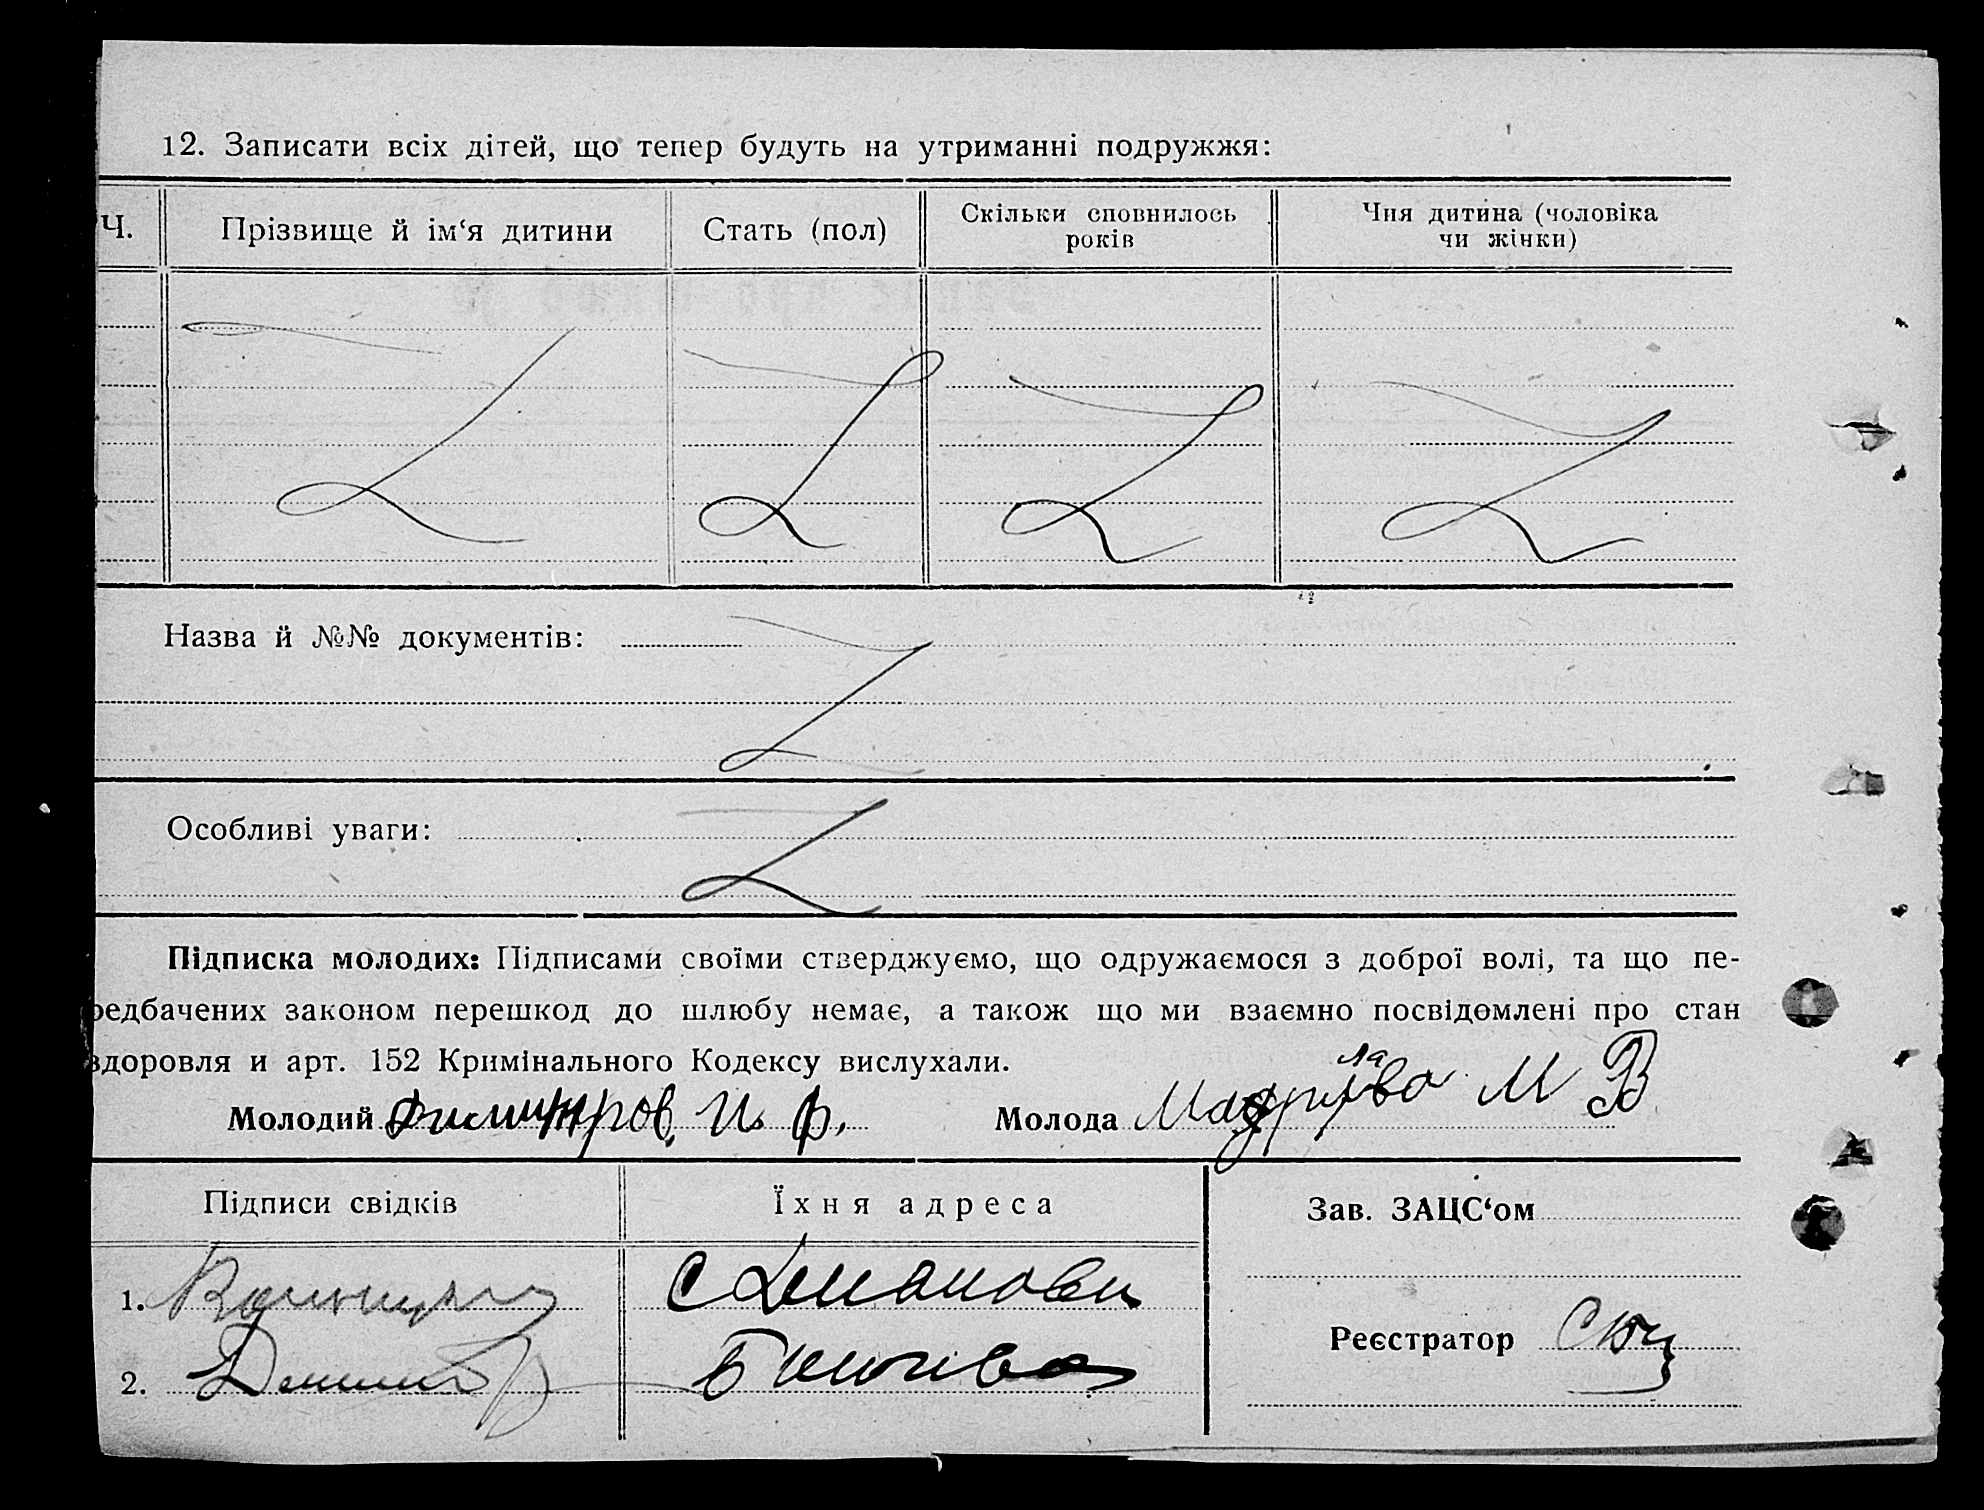 12. Записати всіх дітей, що тепер будуть на утриманні подружжя:
Ч.
Прізвище й ім‘я дитини
Стать (пол)
Скільки сповнилось
років
Чия дитина (чоловіка
чи жінки)
Назва й №№ документів:
Особливі уваги:
Підписка молодих: Підписами своїми стверджуємо, що одружаємося з доброї волі, та що пе-
редбачених законом перешкод до шлюбу немає, а також що ми взаємно посвідомлені про стан
здоровля и арт. 152 Кримінального Кодексу вислухали.
Молодий Димитров И. Ф. Молода М В
Підписи свідків
Їхня адреса
Зав. ЗАЦС‘ом
1.
С
Реєстратор
2.